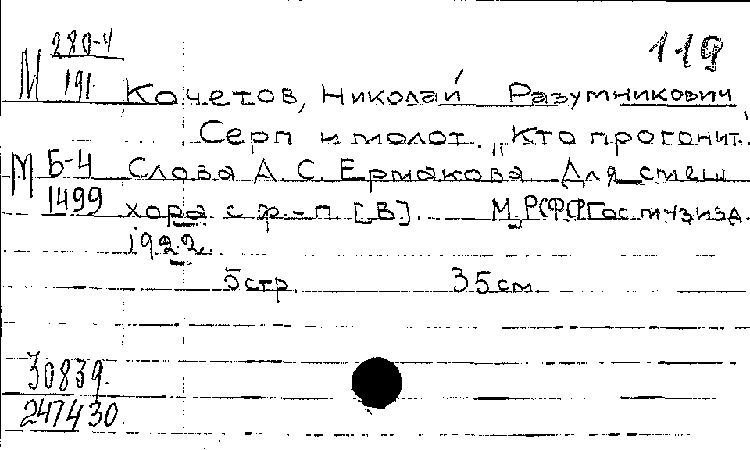 119
М 280-4
191
Кочетов, Николай Разумникович
Серп и молот. „Кто прогонит."
М Б-4
1499
Слова А. С. Ермакова Для смеш
хора с ф-п [В]. М, РСФСР Гос. музизд.
1922.
5 стр. 35 см.
30839.
247430